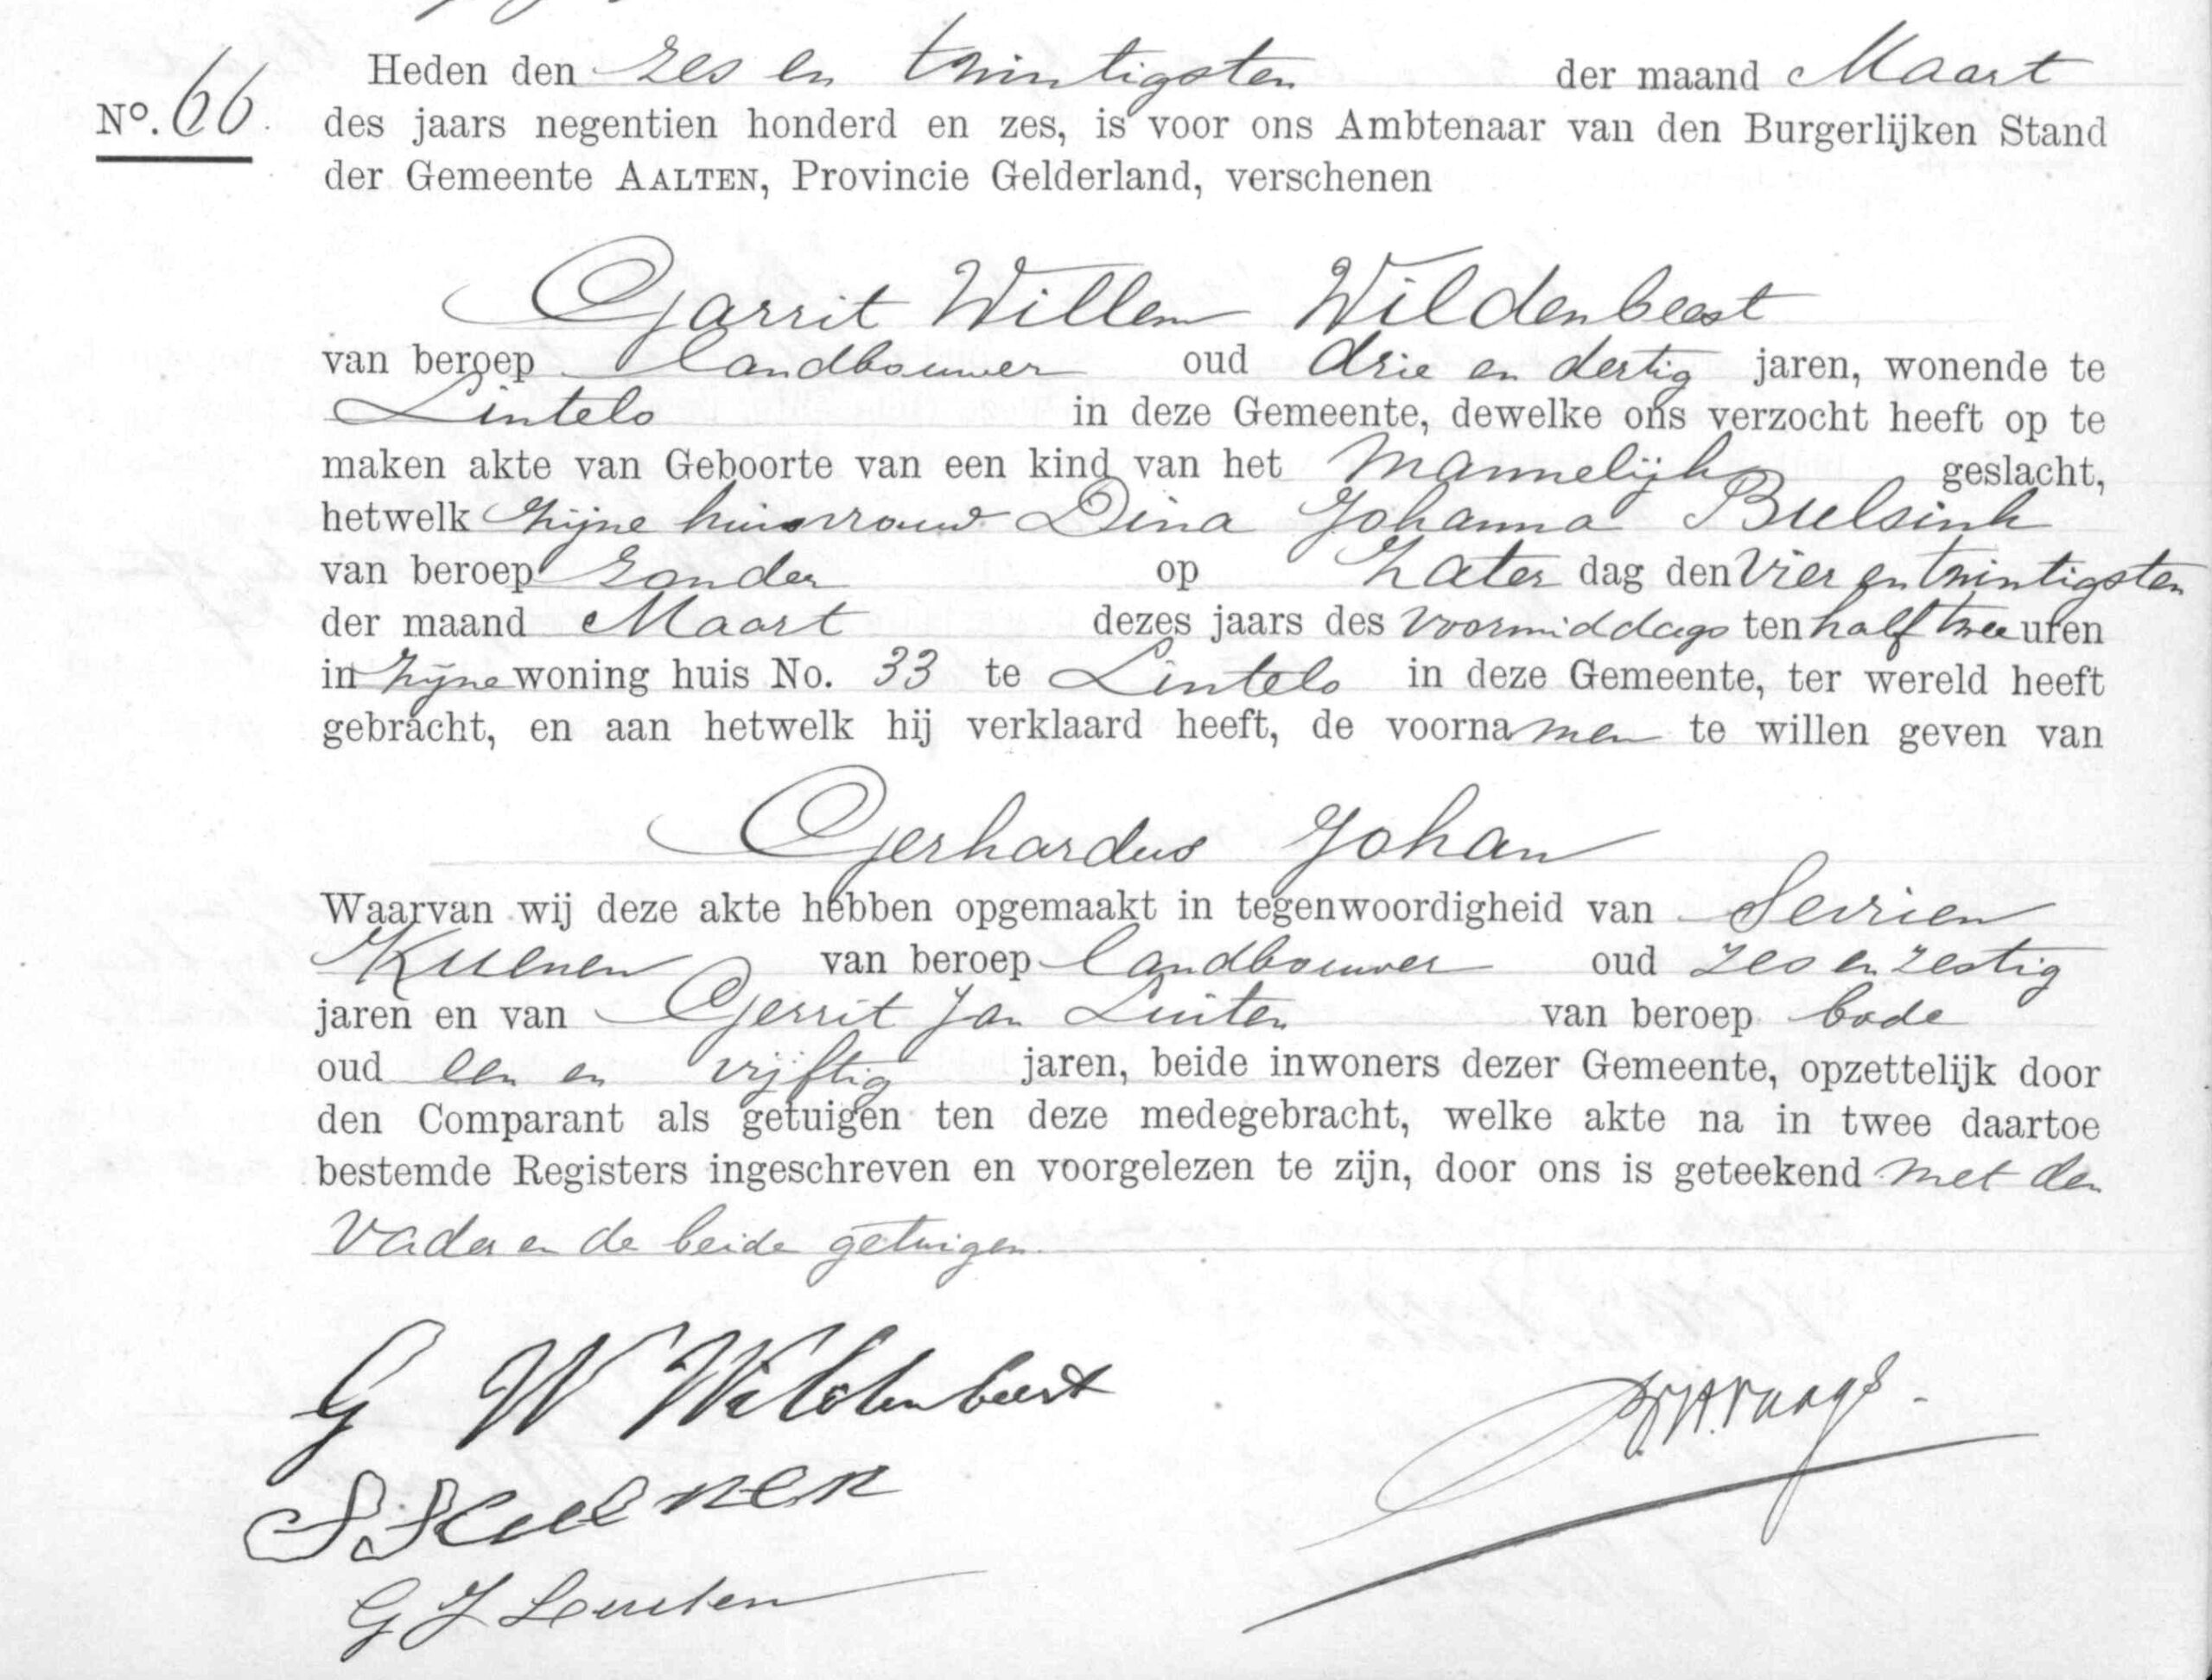 Heden den zes en twintigsten der maand Maart
No. 66. des jaars negentien honderd en zes, is voor ons Ambtenaar van den Burgerlijken Stand
der Gemeente AALTEN, Provincie Gelderland, verschenen
Garrit Willem Wildenbeest
van beroep landbouwer oud drie en dertig jaren, wonende te
Lintelo in deze Gemeente, dewelke ons verzocht heeft op te
maken akte van Geboorte van een kind van het mannelijk geslacht,
hetwelk zijne huisvrouw Dina Johanna Bulsink
van beroep zonder op zater dag den vier en twintigsten
der maand Maart dezes jaars des voormiddags ten half twee uren
in zijne woning huis No. 33 te Lintelo in deze Gemeente, ter wereld heeft
gebracht, en aan hetwelk hij verklaard heeft, de voornamen te willen geven van
Gerhardus Johan
Waarvan wij deze akte hebben opgemaakt in tegenwoordigheid van Sevrien
Kuenen van beroep landbouwer oud zes en zestig
jaren en van Gerrit Jan Luiten van beroep bode
oud een en vijftig jaren, beide inwoners dezer Gemeente, opzettelijk door
den Comparant als getuigen ten deze medegebracht, welke akte na in twee daartoe
bestemde Registers ingeschreven en voorgelezen te zijn, door ons is geteekend met den
Vader en de beide getuigen.
G W Wildenbeest
S. Kuenen
G J Luiten